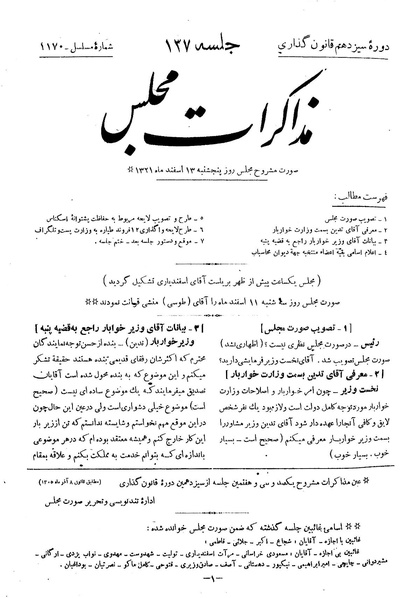 دورهٔ سیزدهم قانون گذاری
جلسه ۱۳۷
شمارهٔ مسلسل - ۱۱۷۰
مذاکرات مجلس
صورت مشروح مجلس روز پنجشنبه ۱۳ اسفند ماه ۱۳۲۱ *
فهرست مطالب:
۱ - تصویب صورت مجلس
۲ - معرفی آقای تدین بسمت وزارت خواربار
۳ - بیانات آقای وزیر خواربار راجع به قضیه پنبه
۴ - اعلام اسامی بقیهٔ اعضاء منتخبه جهة دیوان محاسبات
۵ - طرح و تصویب لایحه مربوط به حفاظت پشتوانهٔ اسکناس
۶ - طرح لایحه واگذاری ۱۲ فروند طیاره به وزارت پست و تلگراف
۷ - موقع و دستور جلسه بعد - ختم جلسه.
(مجلس یکساعت پیش از ظهر بریاست آقای اسفندیاری تشکیل گردید)
صورت مجلس روز سه شنبه ۱۱ اسفند ماه را آقای (طوسی) منشی قرائت نمودند **
[۱ - تصویب صورت مجلس]
رئیس - در صورت مجلس نظری نیست؟ (اظهاری نشد)
صورت مجلس تصویب شد. آقای نخست وزیر فرمایشی دارید؟
[۲ - معرفی آقای تدین بسمت وزارت خواربار]
نخست وزیر - چون امر خواربار و اصلاحات وزارت
خواربار مورد توجه کامل دولت است و لازم بود یک نفر شخص
لایق و کافی آنجا را عهده دار شود آقای تدین وزیر مشاور را
بسمت وزیر خواربار معرفی میکنم (صحیح است - بسیار
خوب، بسیار خوب)
[۳ - بیانات آقای وزیر خواربار راجع بقضیه پنبه]
وزیر خواربار (تدین) - بنده از حسن توجه نمایندگان
محترم که اکثرشان رفقای قدیمی بنده هستند حقیقة تشکر
میکنم و این موضوع که به بنده محول شده است آقایان
تصدیق میفرمایند که یک موضوع ساده ای نیست (صحیح
است) موضوع خیلی دشواری است ولی در عین این حال چون
در این موقع مهم نخواستم و شایسته ندانستم که تن از زیر بار
این کار خارج کنم و همیشه معتقد بوده ام که در هر موضوعی
باندازه ای که بتوانم خدمت به مملکت بکنم و علاقه بمقام
* عین مذاکرات مشروح یکصد و سی و هفتمین جلسه از سیزدهمین دورهٔ قانون گذاری (مطابق قانون ۸ آذر ماه ۱۳۰۵)
ادارهٔ تندنویسی و تحریر صورت مجلس
** اسامی غائبین جلسه گذشته که ضمن صورت مجلس خوانده شده:
غائبین با اجازه - آقایان: شجاع - اکبر - جلائی - فاطمی.
غائبین بی اجازه - آقایان: مسعودی خراسانی - مرآت اسفندیاری - تولیت - شهدوست - مهدوی - نواب یزدی - اورنگی -
مشیر دوانی - چایچی - امیر ابراهیمی - نیکپور - دهستانی - آصف - صادق وزیری - فتوحی - کامل ماکو - نصرتیان - بوداغیان.
-۱-